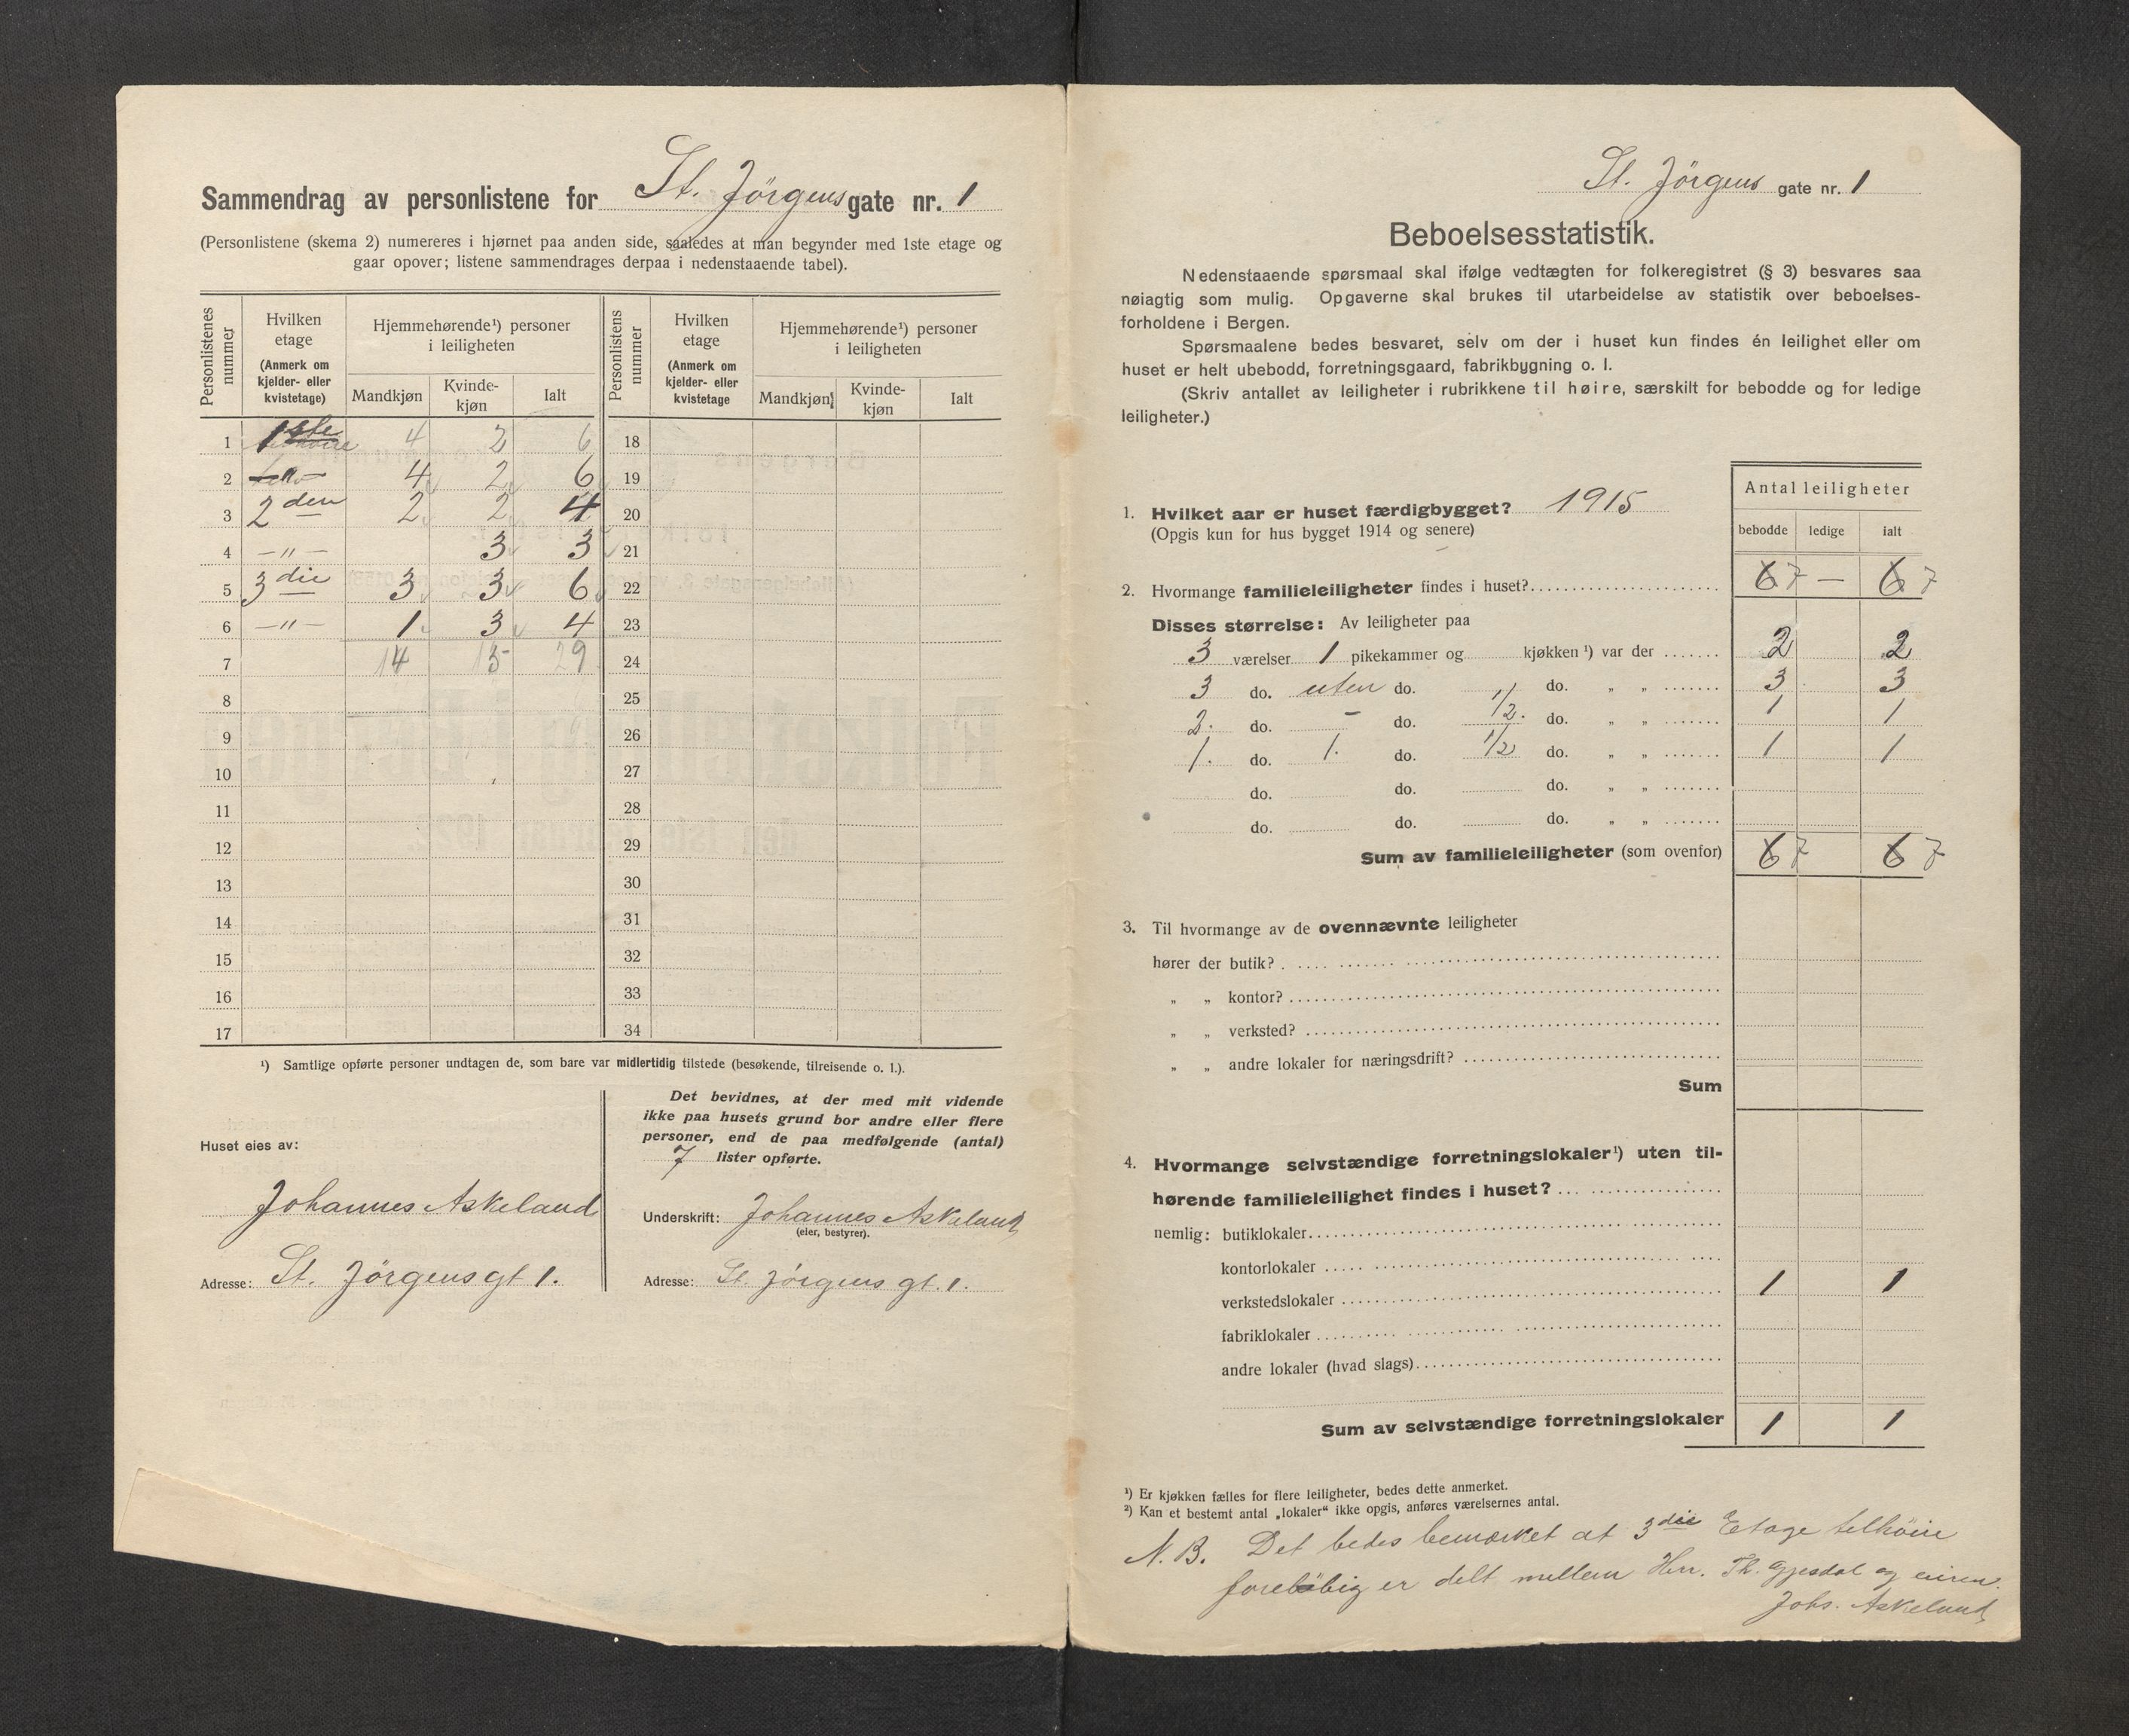 Sammendrag av personlistene for St. Jörgens gate nr. 1
(Personlistene (skema 2) numereres i hjørnet paa anden side, saaledes at man begynder med 1ste etage og
gaar opover; listene sammendrages derpaa i nedenstaaende tabel).
Personlistenes nummer
Hvilken etage
(Anmerk om kjelder- eller kvistetage)
Hjemmehørende¹) personer i leiligheten
Mandkjøn Kvinde-kjøn Ialt
Personlistens nummer
Hvilken etage
(Anmerk om kjelder- eller kvistetage
Hjemmehørende¹) personer i leiligheten
Mandkjøn Kvinde-kjøn Ialt
1 1ste 4 2 6 18
2 4 2 6 19
3 2den 2 2 4 20
4 -"- 3 3 21
5 3die 3 3 6 22
6 -"- 1 3 4 23
7 14 15 29 24
8 25
9 26
10 27
11 28
12 29
13 30
14 31
15 32
16 33
17 34
¹) Samtlige opførte personer undtagen de, som bare var midlertidig tilstede (besøkende, tilreisende o. l.).
Huset eies av:
Johannes Askeland
Adresse: St. Jörgens gt 1.
Det bevidnes, at der med mit vidende
ikke paa husets grund bor andre eller flere
personer, end de paa medfølgende (antal)
7 lister opførte.
Underskrift: Johannes Askeland
(eier, bestyrer).
Adresse: St. Jörgens gt. 1.
St. Jörgens gate nr. 1
Beboelsesstatistik.
Nedenstaaende spørsmaal skal ifølge vedtægten for folkeregistret (§ 3) besvares saa
nøiagtig som mulig. Opgaverne skal brukes til utarbeidelse av statistik over beboelses-
forholdene i Bergen.
Spørsmaalene bedes besvaret, selv om der i huset kun findes én leilighet eller om
huset er helt ubebodd, forretningsgaard, fabrikbygning o. l.
(Skriv antallet av leiligheter i rubrikkene til høire, særskilt for bebodde og for ledige
leiligheter.)
Antal leiligheter
bebodde ledige ialt
1. Hvilket aar er huset færdigbygget? 1915
(Opgis kun for hus bygget 1914 og senere)
2. Hvormange familieleiligheter findes i huset? 6 7 — 6 7
Disses størrelse: Av leiligheter paa
3 værelser 1 pikekammer og kjøkken ¹) var der 2 2
3 do. uten do. do. " " 3 3
2. do. - do. 1/2. do. " " 1 1
1. do. 1. do. 1/2 do. " " 1 1
do. do. do. " "
do. do. do. " "
Sum av familieleiligheter (som ovenfor) 6 7 6 7
3. Til hvormange av de ovennævnte leiligheter
hører der butik?
" " kontor?
" " verksted?
" " andre lokaler for næringsdrift?
Sum
4. Hvormange selvstændige forretningslokaler¹) uten til-
hørende familieleilighet findes i huset?
nemlig: butiklokaler
kontorlokaler
verkstedslokaler 1 1
fabriklokaler
andre lokaler (hvad slags)
Sum av selvstændige forretningslokaler 1 1
¹) Er kjøkken fælles for flere leiligheter, bedes dette anmerket.
²) Kan et bestemt antal „lokaler“ ikke opgis, anføres værelsernes antal.
N. B. Det bedes bemærket at 3die Etage tilhöire
forelöbig er delt mellem Hrr. Th. Gjesdal og
Johs. Askeland